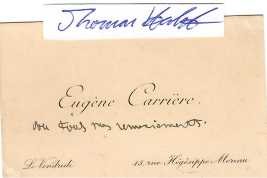 Thomas
Eugène Carrière.
tous nos remerciements.
Le Vendredi
15, rue Hégésippe Moreau